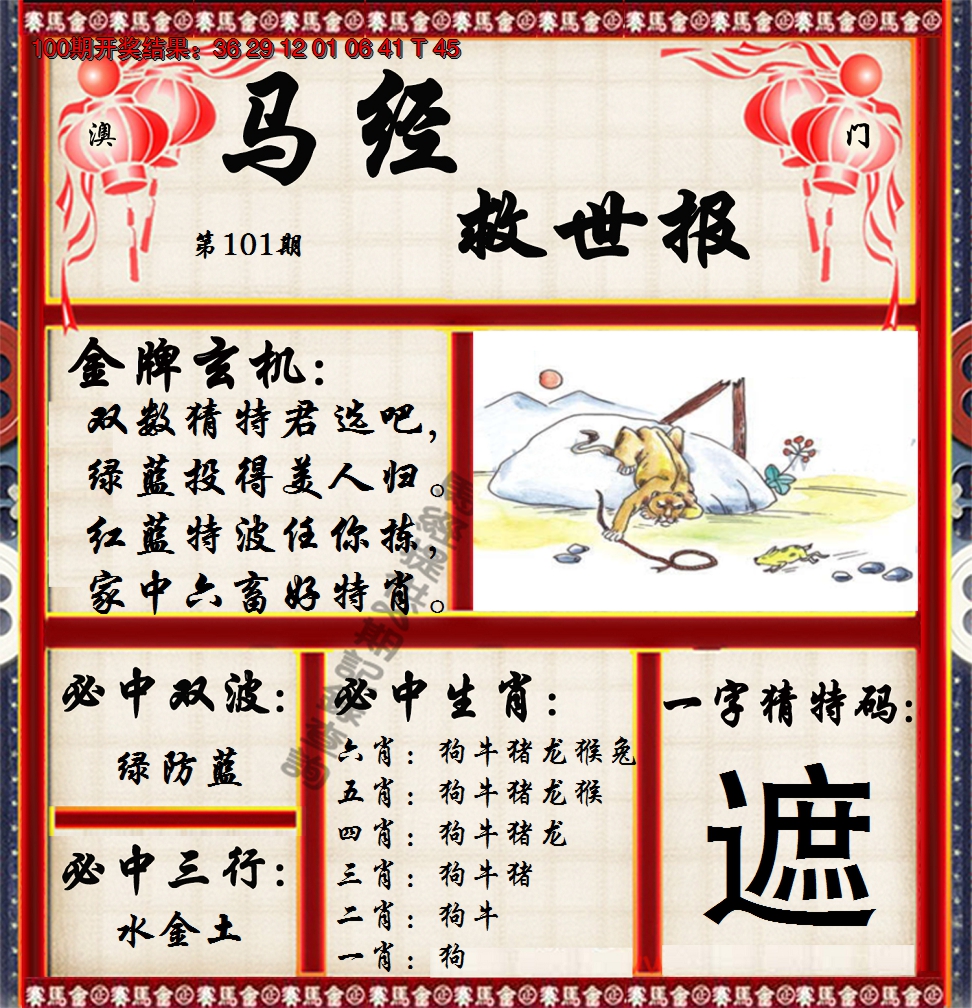 賽馬會 賽馬會 賽馬會 賽馬會 賽馬會 賽馬會 賽馬會
100期开奖结果：36 29 12 01 06 41 T 45
澳 门
马经
救世报
第101期
金牌玄机：
双数猜特君选吧，
绿蓝投得美人归。
红蓝特波任你拣，
家中六畜好特肖。
必中双波：
绿防蓝
必中三行：
水金土
必中生肖：
六肖：狗牛猪龙猴兔
五肖：狗牛猪龙猴
四肖：狗牛猪龙
三肖：狗牛猪
二肖：狗牛
一肖：狗
一字猜特码：
遮